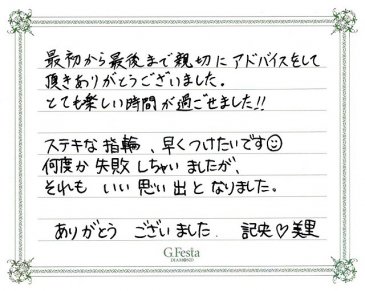 最初から最後まで親切にアドバイスをして
頂きありがとうございました。
とても楽しい時間が過ごせました!!
ステキな指輪、早くつけたいです☺
何度か失敗しちゃいましたが、
それも いい思い出となりました。
ありがとう ございました 記央♡美里
G.Festa
DIAMOND